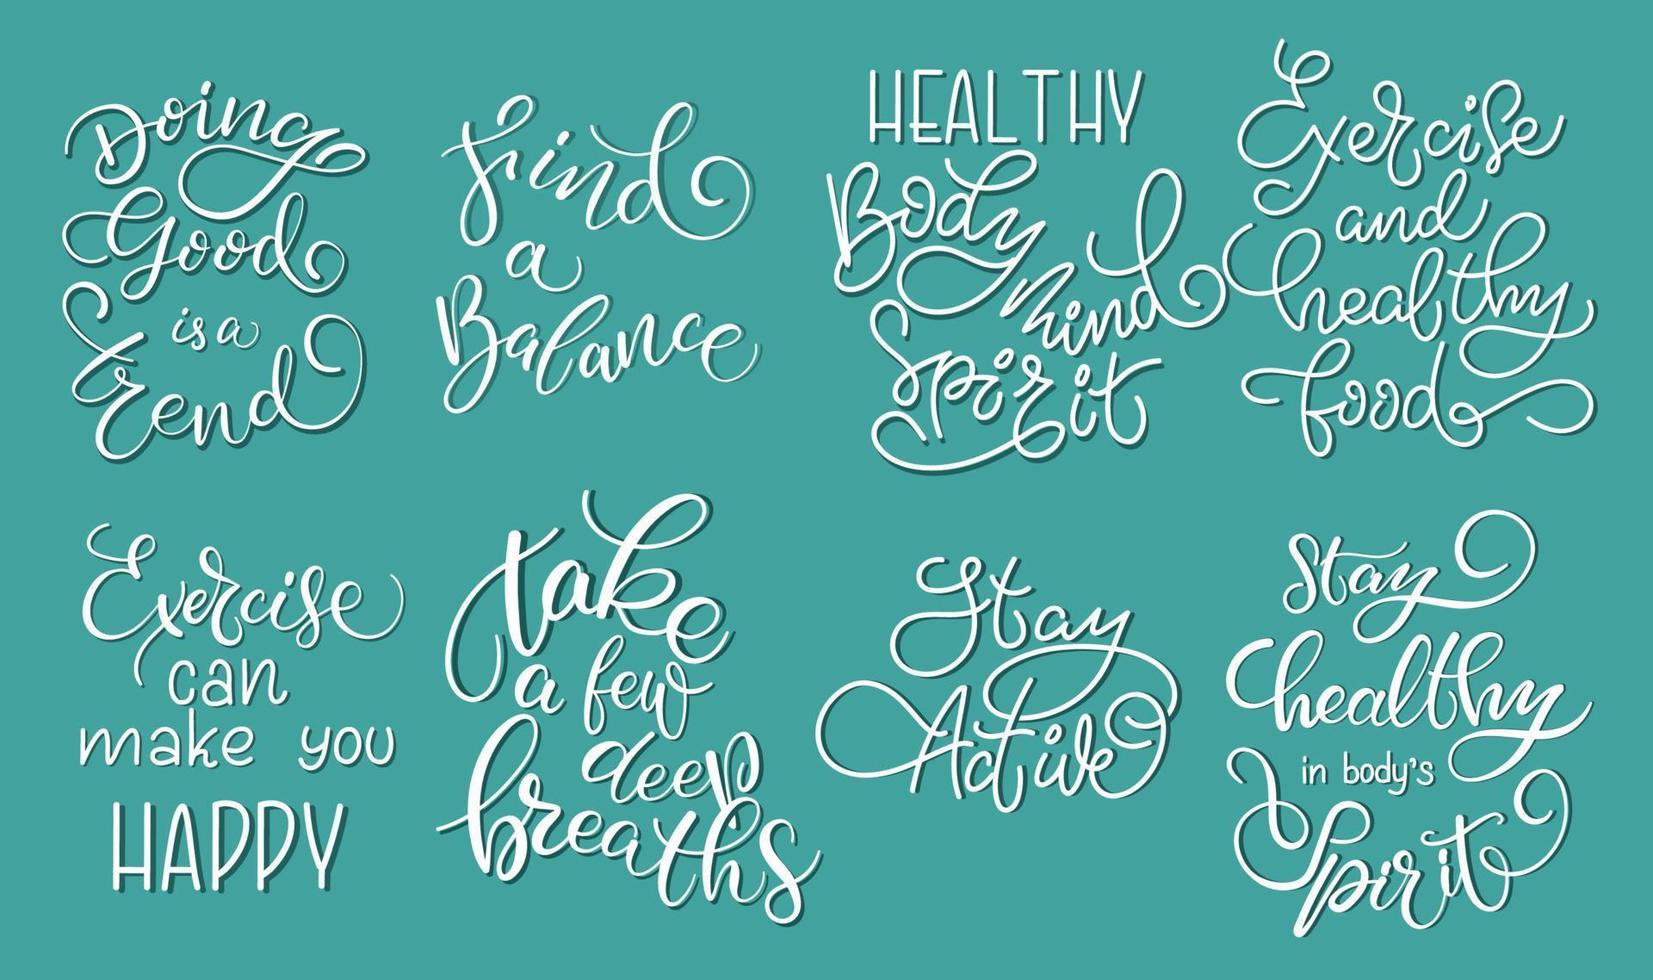 Doing
Good
is a
trend
Find
a
Balance
HEALTHY
Body
mind
Spirit
Exercise
and
healthy
food
Exercise
can
make you
HAPPY
take
a few
deep
breaths
Stay
Active
Stay
healthy
in body's
Spirit